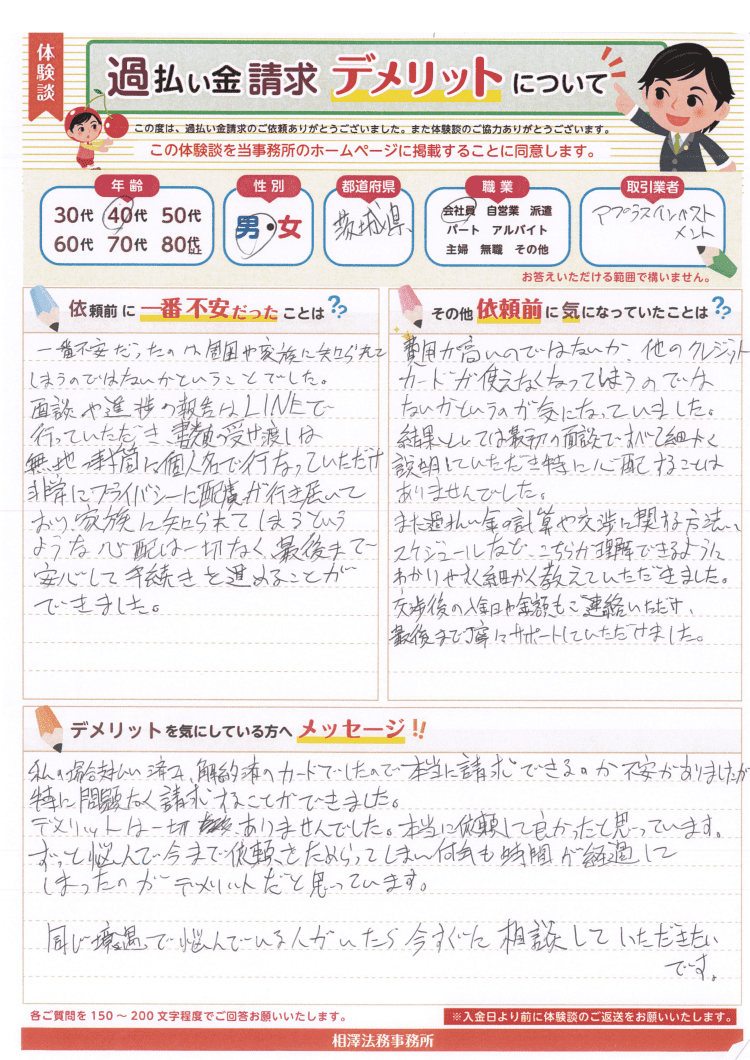 体験談
過払い金請求 デメリットについて
この度は、過払い金請求のご依頼ありがとうございました。また体験談のご協力ありがとうございます。
この体験談を当事務所のホームページに掲載することに同意します。
年齢
30代 40代 50代
60代 70代 80代以上
性別
男・女
都道府県
茨城県
職業
会社員 自営業 派遣
パート アルバイト
主婦 無職 その他
取引業者
アプラスインベスト
メント
お答えいただける範囲で構いません。
依頼前に一番不安だったことは??
一番不安だったのは周囲や家族に知られて
しまうのではないかということでした。
面談や進捗の報告はLINEで
行っていただき、書類の受け渡しは
無地の封筒に個人名で行なっていただけ
非常にプライバシーに配慮が行き届いて
おり、家族に知られてしまうという
ような心配は一切なく、最後まで
安心して手続きを進めることが
できました。
その他依頼前に気になっていたことは??
費用が高いのではないか、他のクレジット
カードが使えなくなってしまうのでは
ないかというのが気になっていました。
結果としては最初の面談ですべて細かく
説明していただき特に心配することは
ありませんでした。
また過払い金の計算や交渉に関する方法、
スケジュールなど、こちらが理解できるように
わかりやすく細かく教えていただきました。
交渉後の入金日や金額もご連絡いただけ、
最後まで丁寧にサポートしていただけました。
デメリットを気にしている方へ メッセージ!!
私の場合支払い済み、解約済のカードでしたので本当に請求できるのか不安がありましたが
特に問題なく請求することができました。
デメリットは一切ありませんでした。本当に依頼して良かったと思っています。
ずっと悩んで今まで依頼をためらってしまい何年も時間が経過して
しまったのがデメリットだと思っています。
同じ境遇で悩んでいる人がいたら今すぐに相談していただきたい
です。
各ご質問を150～200文字程度でご回答お願いいたします。
※入金日より前に体験談のご返送をお願いいたします。
相澤法務事務所